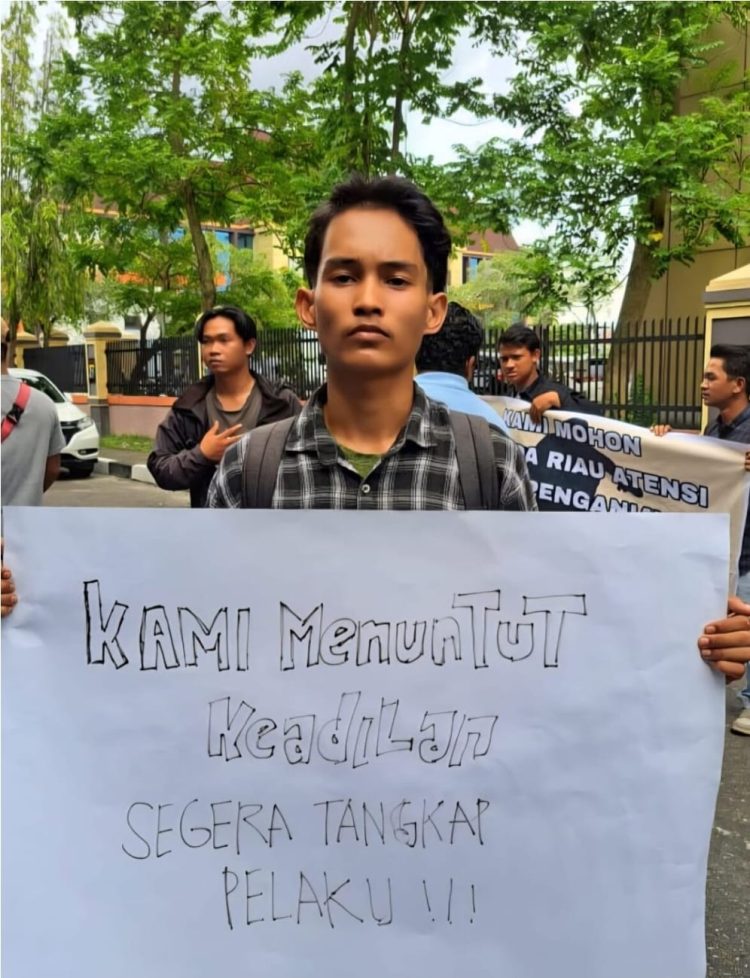 KAMI MOHON
A RIAU ATENSI
KAMI MenunTuT
KeadiLan
SEGERA TANGKAP
PELAKU !!!